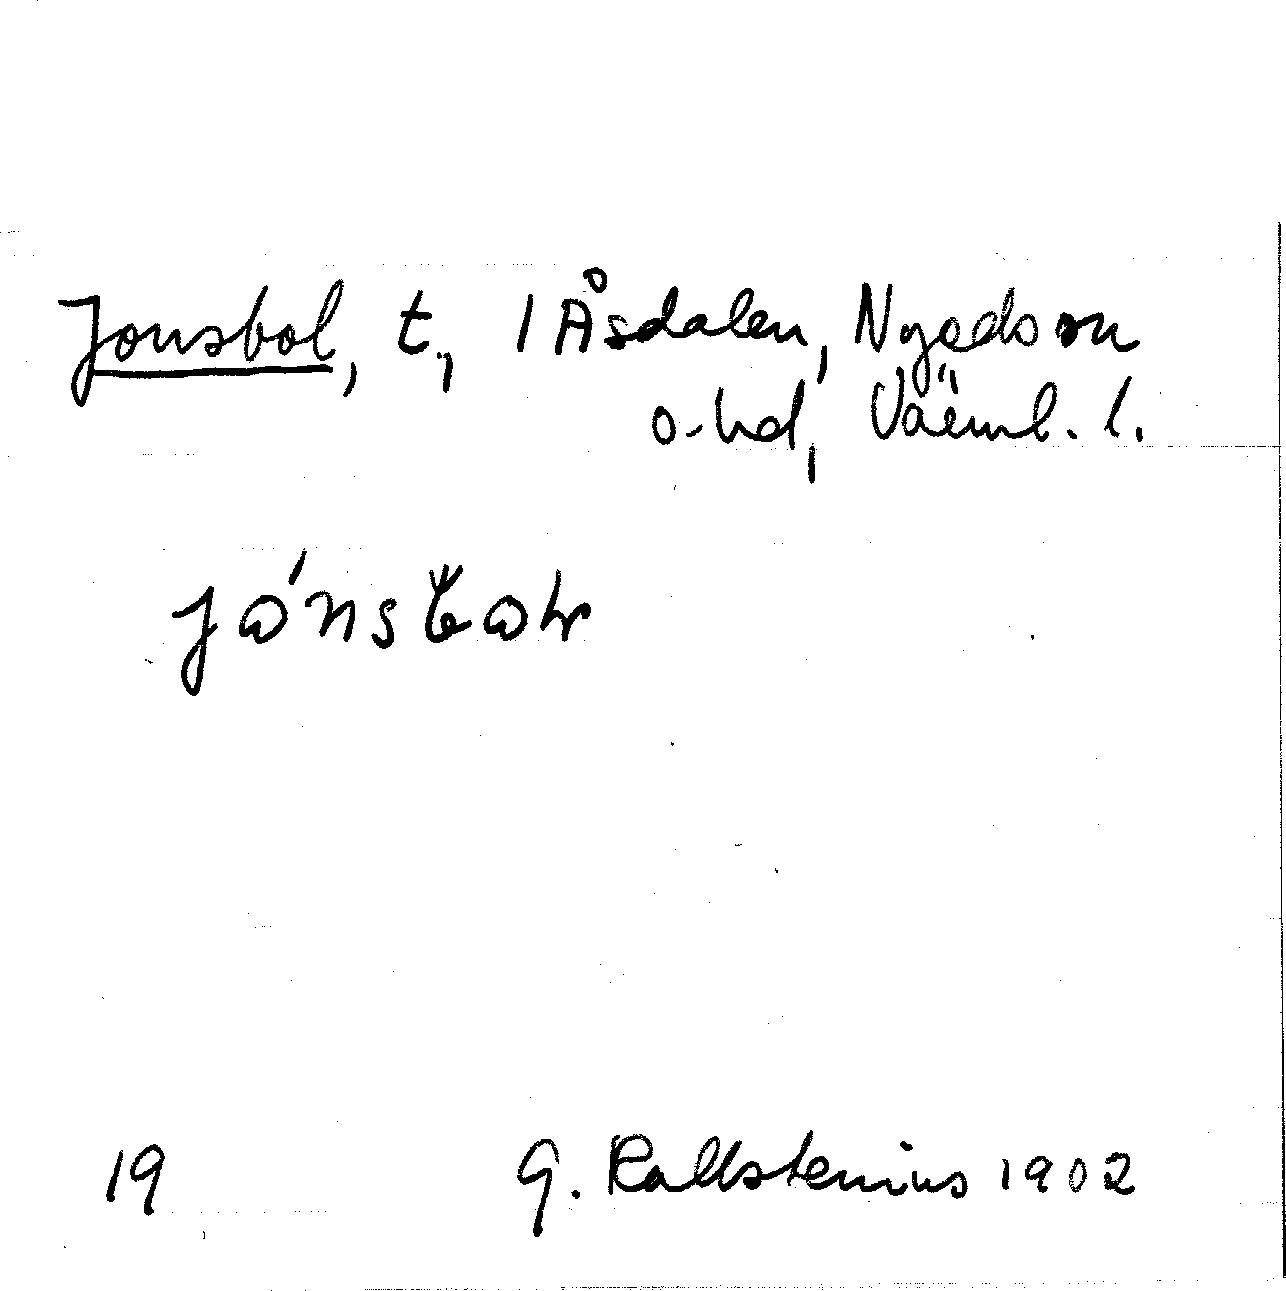 Jonsbol, t., l Åsdalen, Nyeds sn
o. hd, Värml. l.
19 G. Kallstenius 1902